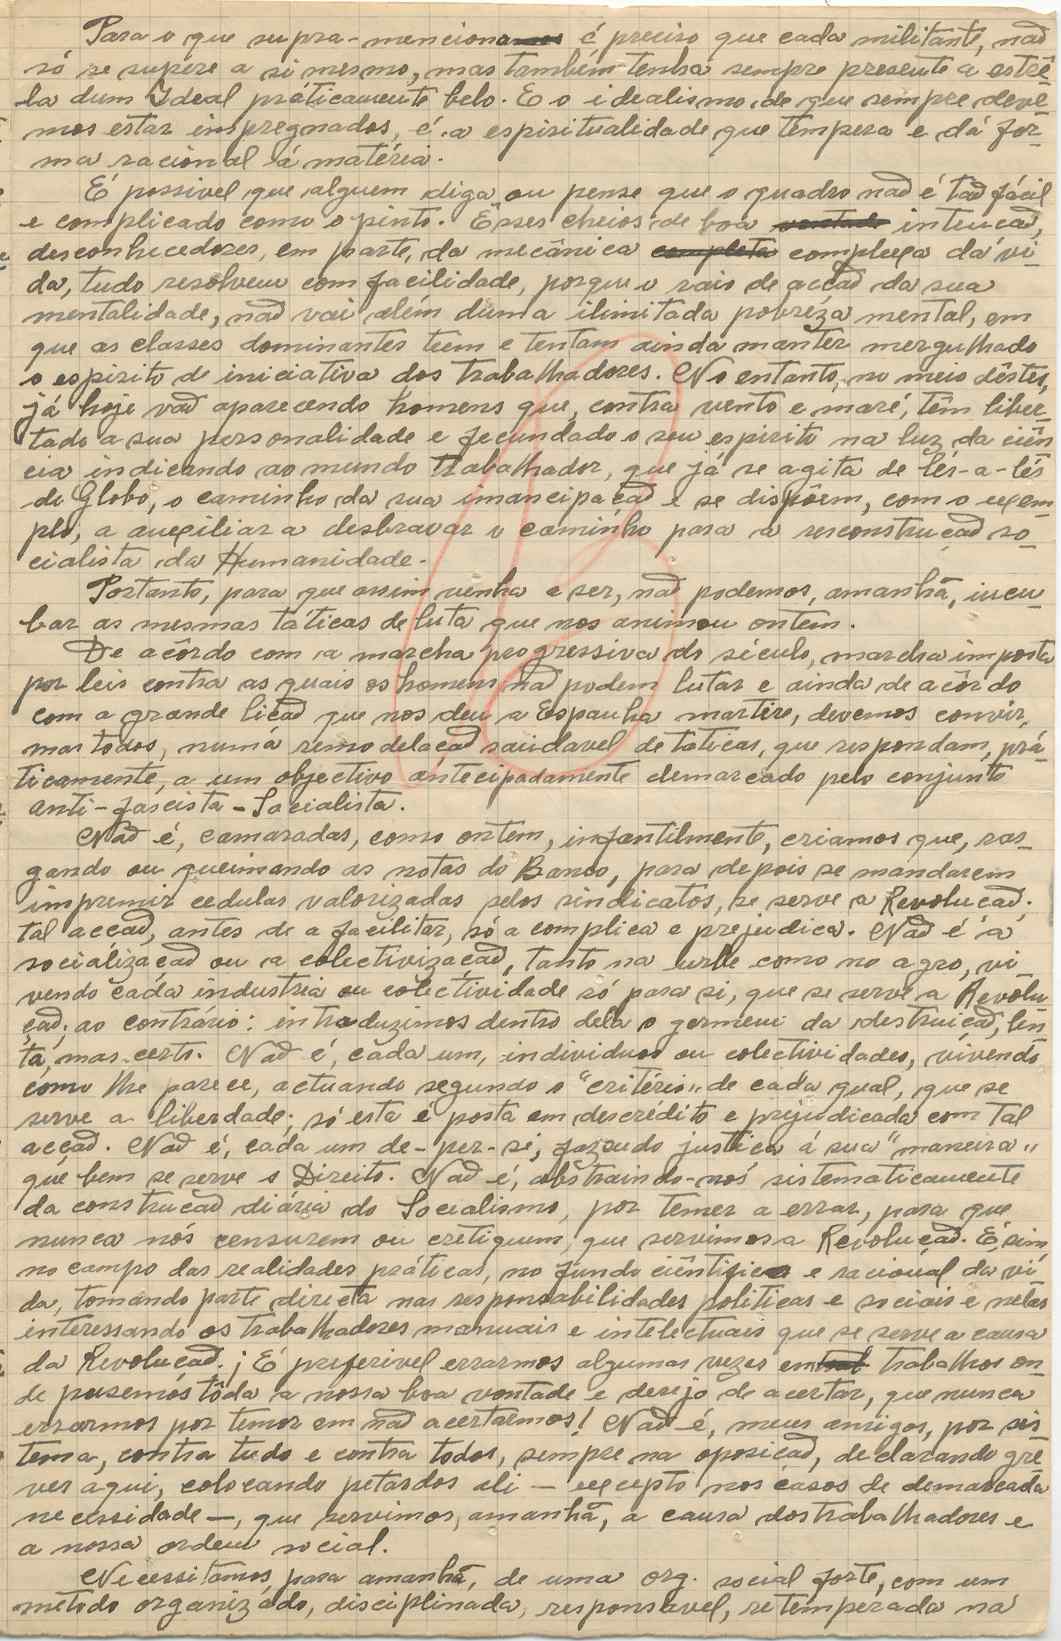 Para o que supra-menciona é preciso que cada militante, não
só se supére a si mesmo, mas também tenha sempre presente a estrê-
la dum Ideal práticamente belo. E o idealismo de que sempre deve-
mos estar impregnados, é a espiritualidade que tempera e dá for-
ma racional á matéria.
É possivel que alguem diga ou pense que o quadro não é tão fácil
e complicado como o pinto. Êsses cheios de boa intenção,
desconhecedores, em parte, da mecânica complexa da vi-
da, tudo resolvem com facilidade, porque o raio de acção da sua
mentalidade, não vai além duma ilimitada pobréza mental, em
que as classes dominantes teem e tentam ainda manter mergulhado
o espirito de iniciativa dos trabalhadores. No entanto, no meio dêstes,
já hoje vão aparecendo homens que, contra vento e maré, têm liber-
tado a sua personalidade e fecundado o seu espirito na luz da ciên
cia indicando ao mundo trabalhador, que já se agita de lés-a-lés
do Globo, o caminho da sua imancipação e se dispõem, com o exem-
plo, a auxiliar a desbravar o caminho para a resconstrução so-
cialista da Humanidade.
Portanto, para que assim venha a ser, não podemos, amanhã, incu-
bar as mesmas táticas de luta que nos animou ontem.
De acôrdo com a marcha progressiva do século, marcha imposta
por leis contra as quais os homens não podem lutar e ainda de acôrdo
com a grande lição que nos deu a Espanha martire, devemos convir,
mas todos, numa remodelação saúdavel de táticas, que respondam, prá-
ticamente, a um objectivo ántecipadamente demarcado pelo conjunto
anti-fascista-Socialista.
Não é, camaradas, como ontem, infantilmente, criamos que, ras-
gando ou queimando as notas do Banco, para depois se mandarem
imprimir cedulas valorizadas pelos sindicatos, se serve a Revolução;
tal acção, antes de a facilitar, só a complica e prejudica. Não é a
socialização ou a colectivização, tanto na urbe como no agro, vi
vendo cada industria ou colectividade só para si, que se serve a Revolu-
ção; ao contrário: intraduzimos dentro dela o germem da destruição, len
ta, mas certo. Não é, cada um, individuos ou colectividades, vivendo
como lhe parece, actuando segundo o "critério" de cada qual, que se
serve a liberdade; só esta é posta em descrédito e prejudicada com tal
acção. Não é, cada um de-per-si, fazendo justiça á sua "maneira"
que bem se serve o Direito. Não é, abstraindo-nos sistematicamente
da construção diária do Socialismo, por temer a errar, para que
nunca nós censurem ou cretiquem, que servimos a Revolução. É, sim,
no campo das realidades práticas, no fundo ciêntifico e racional da vi
da, tomando parte directa nas responsabilidades politicas e sociais e nelas
interessando os trabalhadores manuais e intelectuais que se serve a causa
da Revolução. ¡ É preferivel errarmos algumas vezes em trabalhos on-
de pusemos tôda a nossa boa vontade e desejo de acertar, que nunca
errarmos por temor em não acertarmos! Não é, meus amigos, por sis
tema, contra tudo e contra todos, sempre na oposição, declarando gré-
ves aqui, colocando petardos ali — excepto nos casos de demarcada
necessidade —, que servimos, amanhã, a causa dos trabalhadores e
a nossa ordem social.
Necessitamos, para amanhã, de uma org. social forte, com um
método organizádo, disciplinada, responsavel, retemperada na